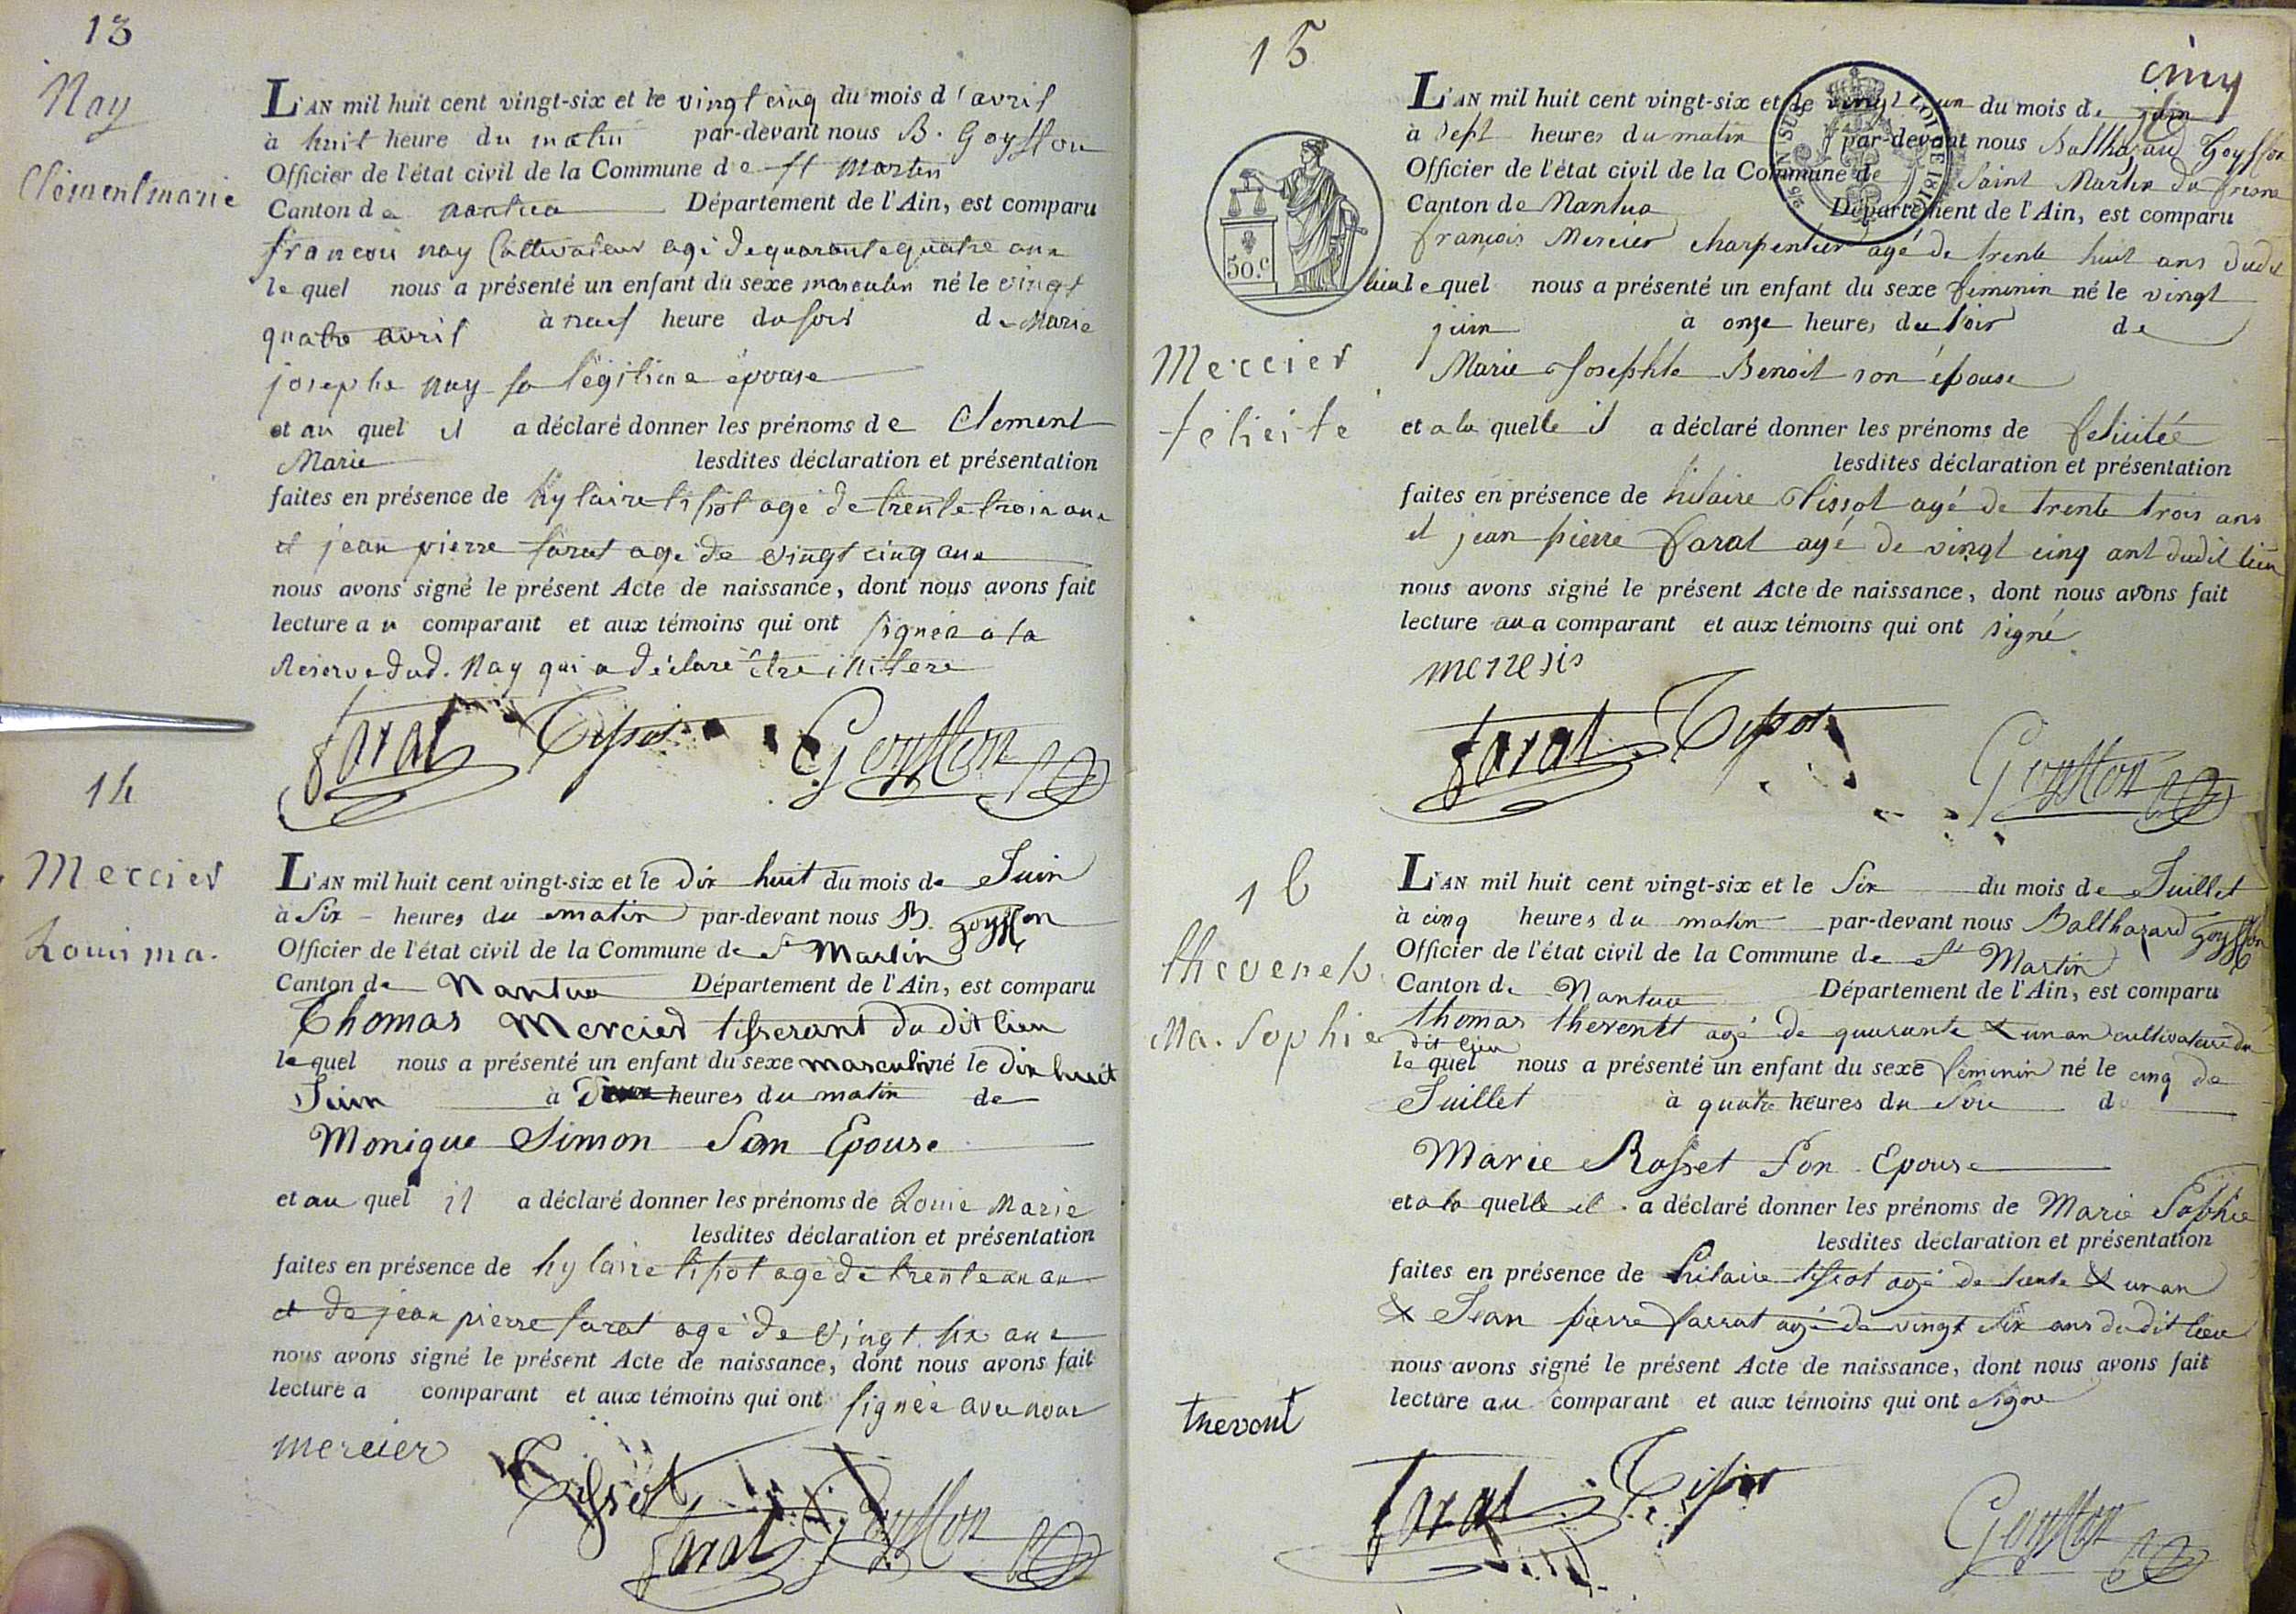 13
Nay
Clément marie
L'AN mil huit cent vingt-six et le vingt cinq du mois d'avril
à huit heure du matin par-devant nous B. Goyffon
Officier de l'état civil de la Commune de st Martin
Canton de nantua Département de l'Ain, est comparu
francois nay Cultivateur agé de quarante quatre ans
le quel nous a présenté un enfant du sexe masculin né le vingt
quatre avril à neuf heure du soir de Marie
josephe nay sa légitime épouse
et au quel il a déclaré donner les prénoms de Clement
Marie lesdites déclaration et présentation
faites en présence de hylaire tissot agé de trente trois ans
et jean pierre farat agé de vingt cinq ans
nous avons signé le présent Acte de naissance, dont nous avons fait
lecture au comparant et aux témoins qui ont signés a la
Réserve dud. Nay qui a déclaré être illitere
farat Tissot Goyffon
14
Mercier
Louis ma.
L'AN mil huit cent vingt-six et le dix huit du mois de Juin
à Six heures du matin par-devant nous B. Goyffon
Officier de l'état civil de la Commune de St Martin
Canton de Nantua Département de l'Ain, est comparu
Thomas Mercier tisserant du dit lieu
le quel nous a présenté un enfant du sexe masculin né le dix huit
Juin à heures du matin de
Monique Simon Son Epouse
et au quel il a déclaré donner les prénoms de Louis Marie
lesdites déclaration et présentation
faites en présence de hylaire tissot agé de trente un an
et de jean pierre farat agé de vingt six ans
nous avons signé le présent Acte de naissance, dont nous avons fait
lecture a comparant et aux témoins qui ont signés avec nous
mercier Tissot
farat Goyffon
15
cinq
L'AN mil huit cent vingt-six et le vingt un du mois de juin
à sept heures du matin par-devant nous Balthazard Goyffon
Officier de l'état civil de la Commune de Saint Martin du fresne
Canton de Nantua Département de l'Ain, est comparu
50.c
françois Mercier charpentier agé de trente huit ans dudit
lieu le quel nous a présenté un enfant du sexe féminin né le vingt
juin à onze heures du soir de
Mercier
félicité
Marie Josephte Benoit son épouse
et a la quelle il a déclaré donner les prénoms de felicitée
lesdites déclaration et présentation
faites en présence de hilaire Tissot agé de trente trois ans
et jean pierre farat agé de vingt cinq ans dudit lieu
nous avons signé le présent Acte de naissance, dont nous avons fait
lecture au comparant et aux témoins qui ont signé
farat Tissot Goyffon
16
thevenet
Ma. Sophie
L'AN mil huit cent vingt-six et le Six du mois de Juillet
à cinq heures du matin par-devant nous Balthazard Goyffon
Officier de l'état civil de la Commune de St Martin
Canton de Nantua Département de l'Ain, est comparu
thomas thevenet agé de quarante & un an cultivateur du
dit lieu
le quel nous a présenté un enfant du sexe féminin né le cinq de
Juillet à quatre heures du Soir d
Marie Rosset Son Epouse
et a la quelle il a déclaré donner les prénoms de Marie Sophie
lesdites déclaration et présentation
faites en présence de hilaire tissot agé de trente & un an
& Jean pierre farrat agé de vingt Six ans du dit lieu
nous avons signé le présent Acte de naissance, dont nous avons fait
lecture au comparant et aux témoins qui ont signé
farat Tissot Goyffon